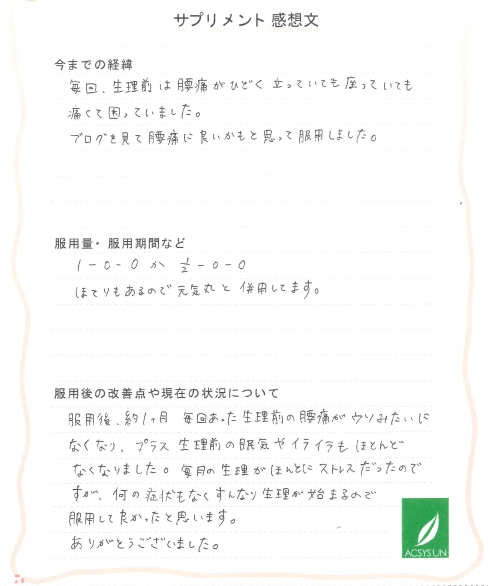 サプリメント 感想文
今までの経緯
毎回、生理前は腰痛がひどく立っていても座っていても
痛くて困っていました。
ブログを見て腰痛に良いかもと思って服用しました。
服用量・服用期間など
1-0-0 か 1/2-0-0
ほてりもあるので元気丸と併用してます。
服用後の改善点や現在の状況について
服用後、約1ヶ月 毎回あった生理前の腰痛がウソみたいに
なくなり、プラス生理前の眠気やイライラもほとんど
なくなりました。毎月の生理がほんとにストレスだったので
すが、何の症状もなくすんなり生理が始まるので
服用して良かったと思います。
ありがとうございました。
ACSYS UN